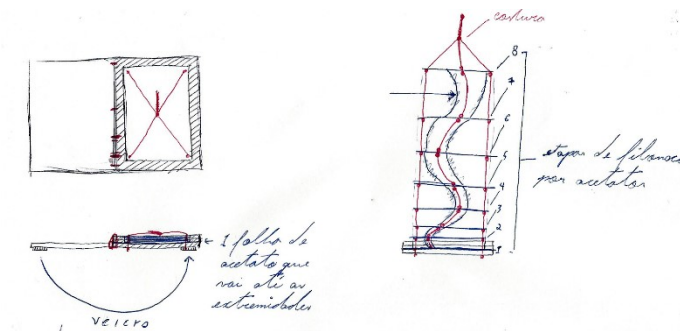 costura
8
7
6
5
4
3
2
1
etapas de fibonacci
por acetatos
1 folha de
acetato que
vai até as
extremidades
velcro